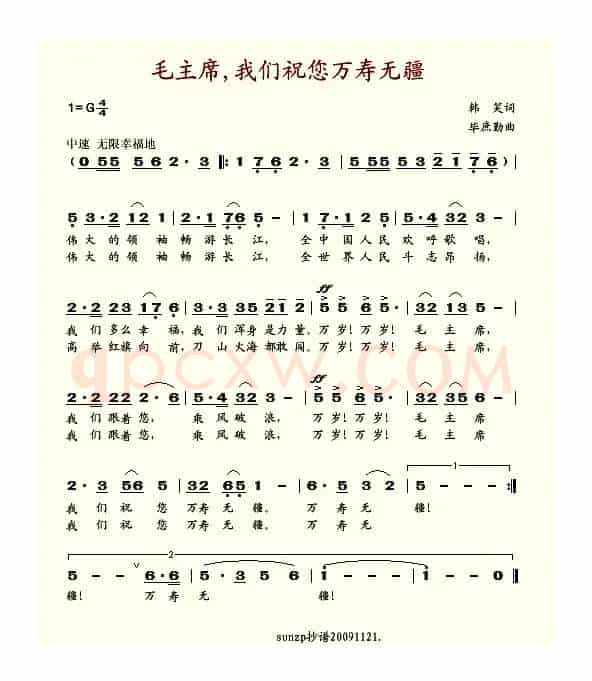 毛主席,我们祝您万寿无疆
1=G 4/4
韩 笑词
毕庶勤曲
中速 无限幸福地
(0 55 56 2·3 |: 1 76 2·3 | 5 55 53 21 76)
5 3·2 12 1 | 2·1 76 5 - | 1 7·2 15 | 5·4 32 3 -
伟大的领袖畅游长江, 全中国人民欢呼歌唱,
伟大的领袖畅游长江, 全世界人民斗志昂扬,
ff
2·2 23 17 6 | 3·3 35 21 2 | 5 5 5· | 32 13 5 -
我们多么幸福,我们浑身是力量。万岁!万岁!毛主席,
高举红旗向前,刀山火海都敢闯。万岁!万岁!毛主席,
qpcxw.com
ff
2·2 22 2·6 | 5·4 32 3 - | 6 6 5· | 32 12 3 -
我们跟着您, 乘风破浪, 万岁!万岁!毛主席
我们跟着您, 乘风破浪, 万岁!万岁!毛主席
1
2·3 56 5 | 32 65 1 - | 6·5 3 2 | 5 - - - :|
我们祝您万寿无疆, 万寿无疆!
我们祝您万寿无疆, 万寿无
2
5 - - 6·6 | 5·3 5 6 | 1 - - - | 1 - - 0
疆! 万寿无疆!
sunzp抄谱20091121.